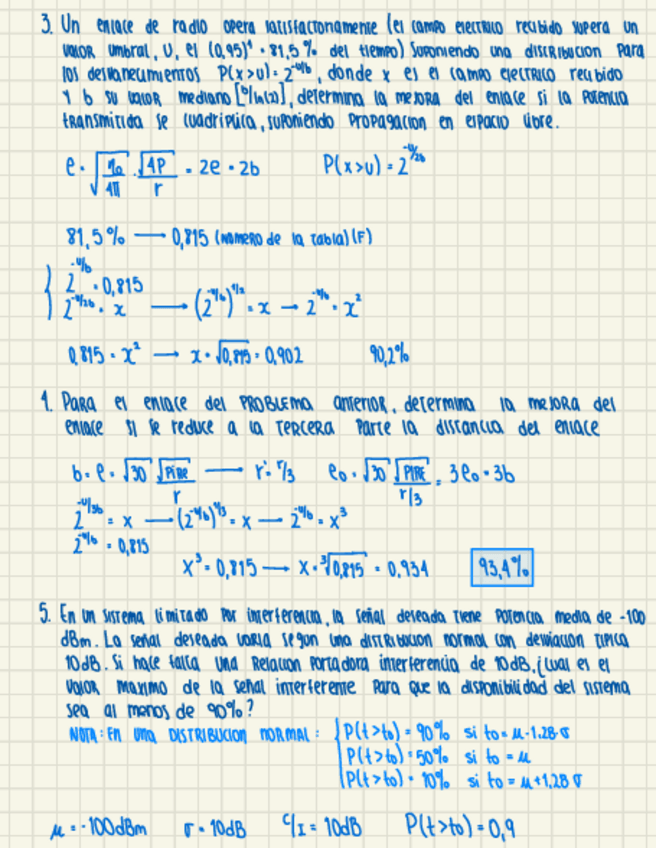 3. Un enlace de radio opera satisfactoriamente (el campo electrico recibido supera un
valor umbral, U, el (0,95)⁴ = 81,5% del tiempo) Suponiendo una distribucion para
los desvanecimientos P(x>u) = 2^(-u/b), donde x es el campo electrico recibido
y b su valor mediano [σ/ln(2)], determina la mejora del enlace si la potencia
transmitida se cuadriplica, suponiendo propagacion en espacio libre.
e = √(η₀/4π) · √(4P)/r = 2e = 2b P(x>u) = 2^(-u/2b)
81,5% → 0,815 (numero de la tabla) (F)
2^(-u/b) = 0,815
2^(-u/2b) = x → (2^(-u/b))^(1/2) = x → 2^(-u/b) = x²
0,815 = x² → x = √0,815 = 0,902 90,2%
4. Para el enlace del PROBLEMA anterior, determina la mejora del
enlace si se reduce a la TERCERA parte la distancia del enlace
b = e = √30 √PIRE/r → r' = r/3 e₀ = √30 √PIRE/(r/3) = 3e₀ = 3b
2^(-u/3b) = x → (2^(-u/b))^(1/3) = x → 2^(-u/b) = x³
2^(-u/b) = 0,815
x³ = 0,815 → x = ³√0,815 = 0,934 93,4%
5. En un sistema limitado por interferencia, la señal deseada tiene potencia media de -100
dBm. La señal deseada varia segun una distribucion normal con desviacion tipica
10dB. Si hace falta una relacion portadora interferencia de 10dB. ¿cual es el
valor maximo de la señal interferente para que la disponibilidad del sistema
sea al menos de 90%?
NOTA: En una DISTRIBUCION NORMAL: P(t>t₀) = 90% si t₀ = μ-1.28·σ
P(t>t₀) = 50% si t₀ = μ
P(t>t₀) = 10% si t₀ = μ+1,28 σ
μ = -100dBm σ = 10dB C/I = 10dB P(t>t₀) = 0,9